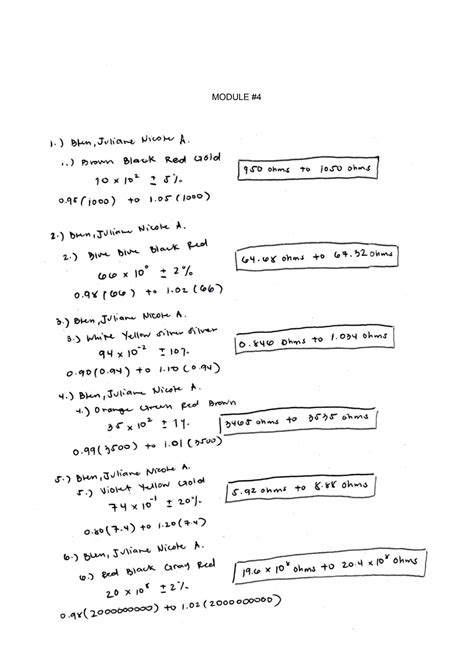 MODULE #4
1.) Bten, Juliane Nicole A.
1.) Brown Black Red Gold
10 x 10² ± 5%
950 ohms to 1050 ohms
0.95(1000) to 1.05(1000)
2.) Bten, Juliane Nicole A.
2.) Blue Blue Black Red
66 x 10⁰ ± 2%
64.68 ohms to 67.32 ohms
0.98(66) to 1.02(66)
3.) Bten, Juliane Nicole A.
3.) White Yellow Silver Silver
94 x 10⁻² ± 10%
0.846 ohms to 1.034 ohms
0.90(0.94) to 1.10(0.94)
4.) Bten, Juliane Nicole A.
4.) Orange Green Red Brown
35 x 10² ± 1%
3465 ohms to 3535 ohms
0.99(3500) to 1.01(3500)
5.) Bten, Juliane Nicole A.
5.) Violet Yellow Gold
74 x 10⁻¹ ± 20%
5.92 ohms to 8.88 ohms
0.80(7.4) to 1.20(7.4)
6.) Bten, Juliane Nicole A.
6.) Red Black Gray Red
20 x 10⁸ ± 2%
19.6 x 10⁸ ohms to 20.4 x 10⁸ ohms
0.98(2000000000) to 1.02(2000000000)